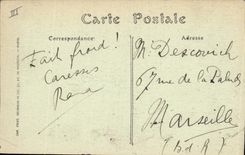 III
Carte Postale
Correspondance
Adresse
Fait froid!
Caresses
Rena
M. Descovich
67 rue de la
Marseille
(B.d.R.)